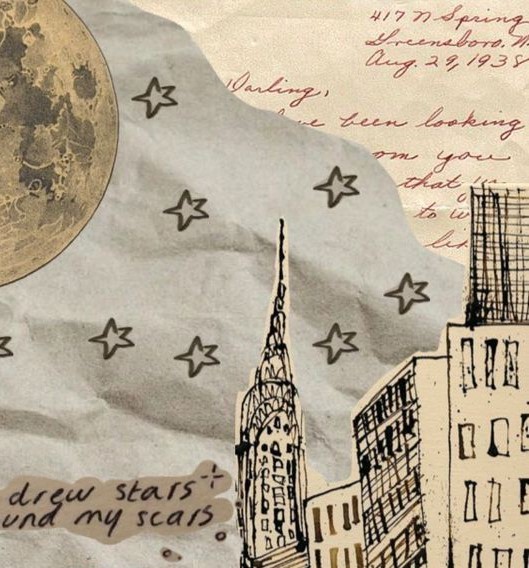 417 N Spring
Greensboro, N
Aug. 29, 1938
Darling,
been looking
om you
that
to w
drew stars
und my scars